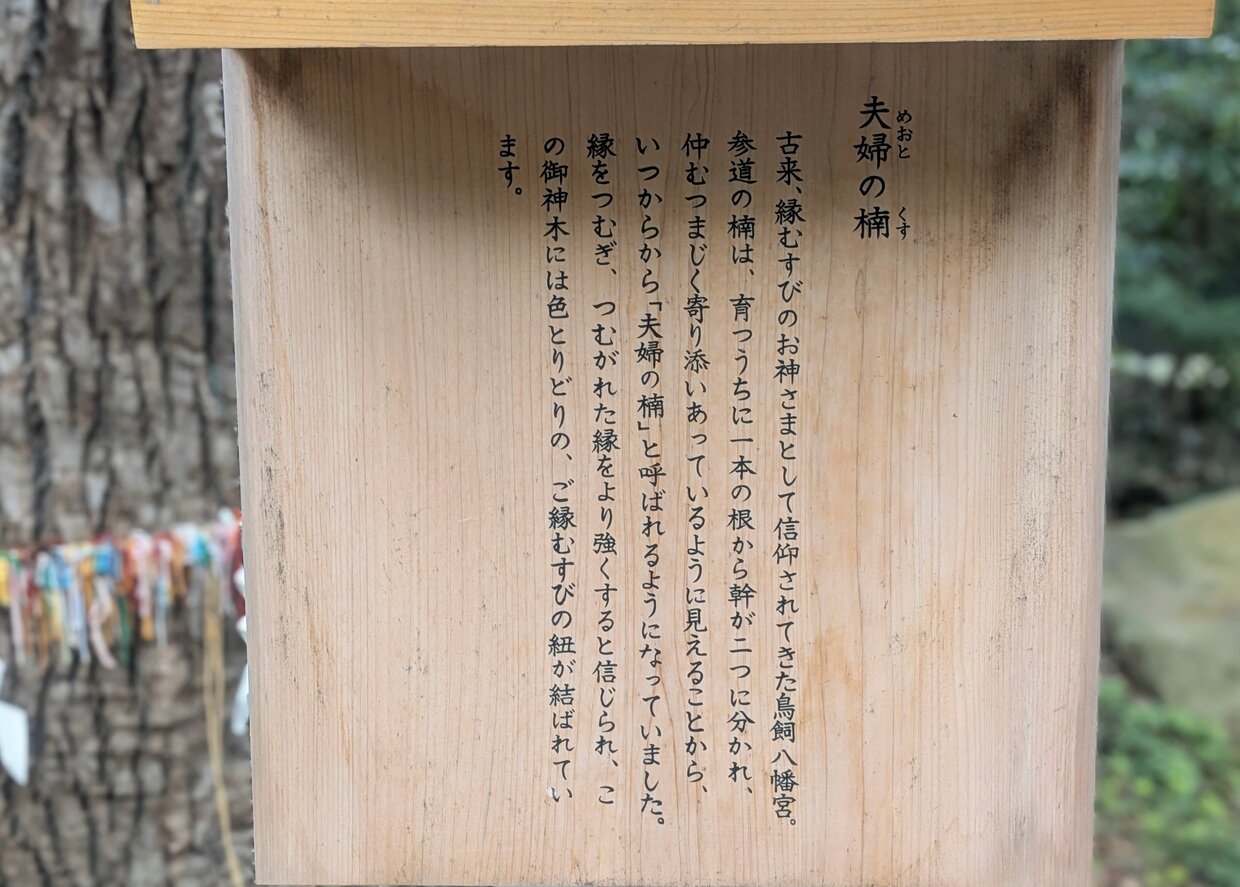 夫婦の楠
めおと
くす
古来、縁むすびのお神さまとして信仰されてきた鳥飼八幡宮。
参道の楠は、育つうちに一本の根から幹が二つに分かれ、
仲むつまじく寄り添いあっているように見えることから、
いつからから「夫婦の楠」と呼ばれるようになっていました。
縁をつむぎ、つむがれた縁をより強くすると信じられ、こ
の御神木には色とりどりの、ご縁むすびの紐が結ばれてい
ます。